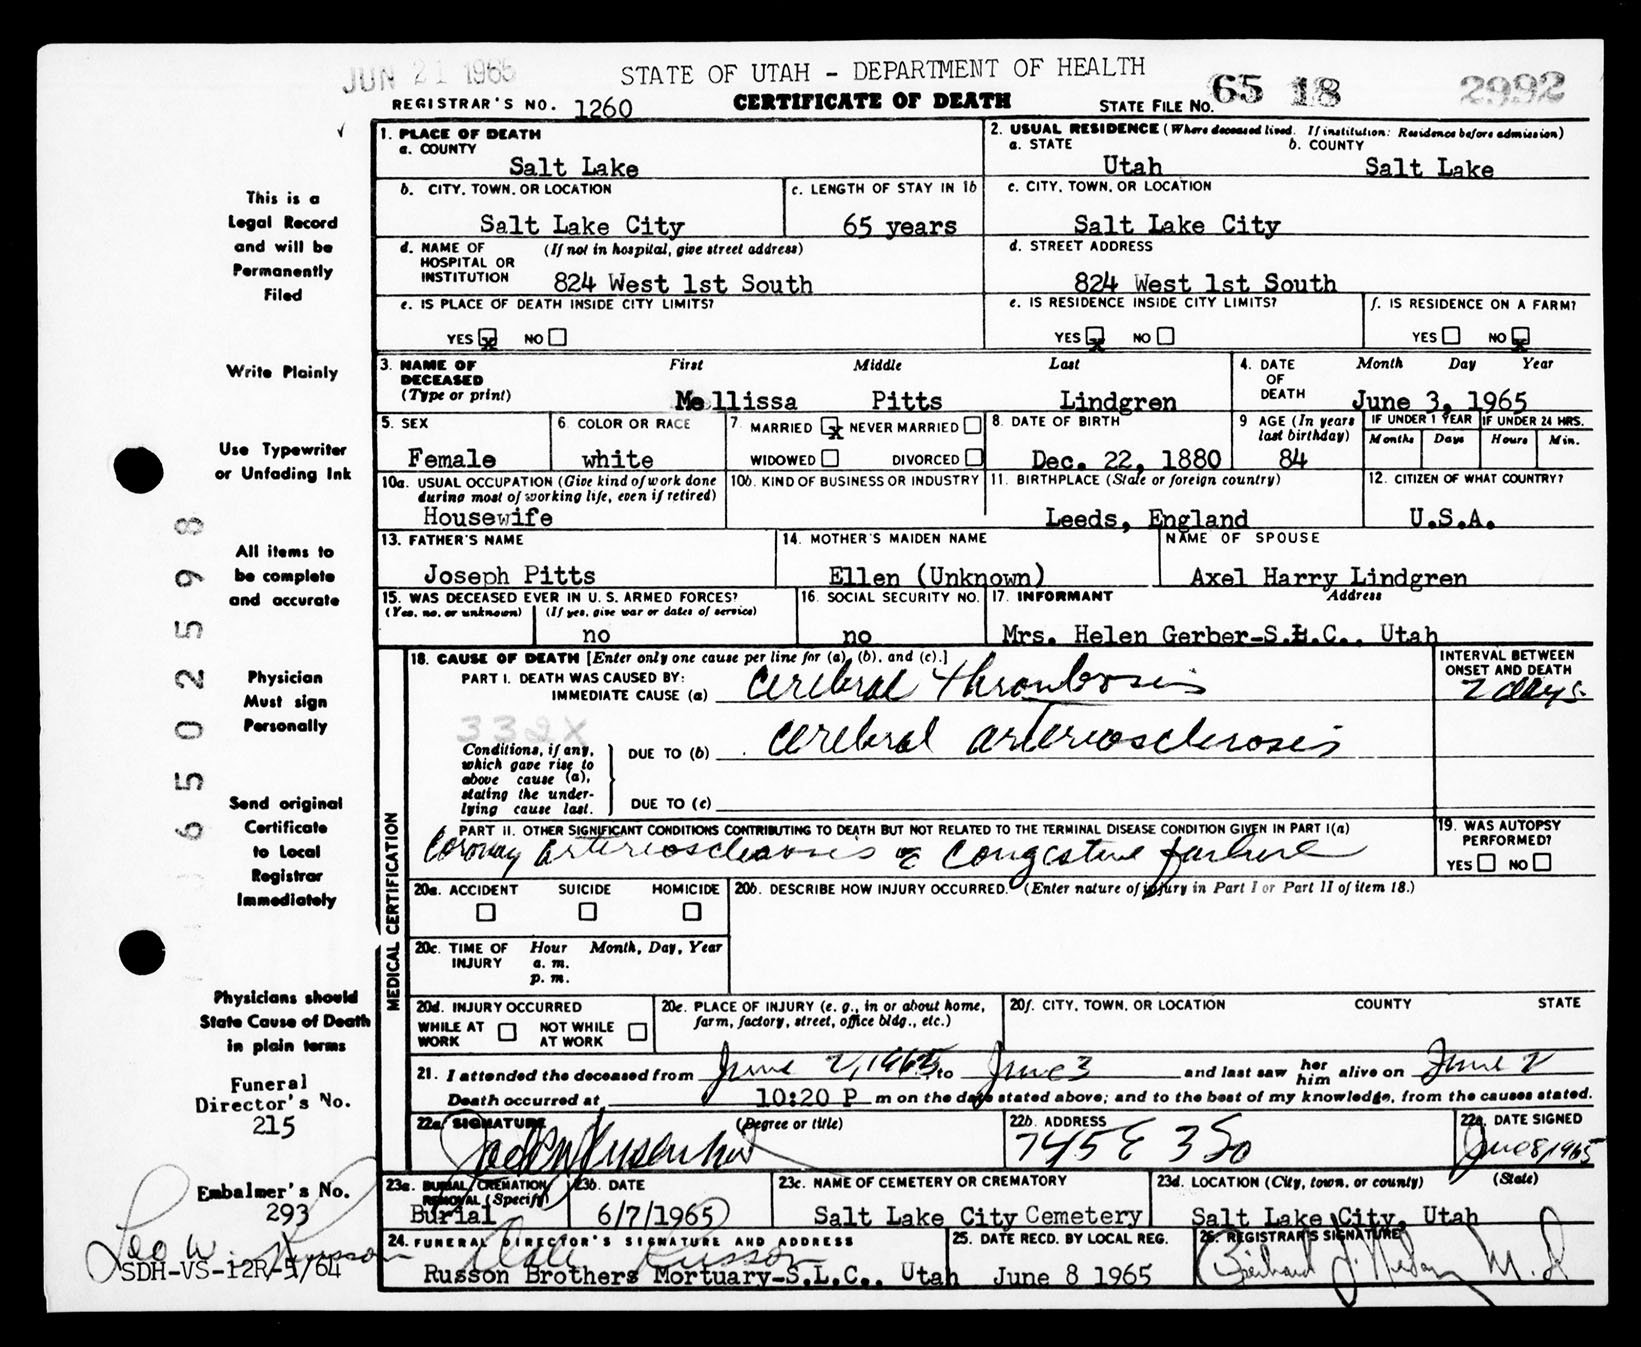 JUN 21 1965
STATE OF UTAH - DEPARTMENT OF HEALTH
REGISTRAR'S NO. 1260 CERTIFICATE OF DEATH STATE FILE NO. 65 18 2992
This is a
Legal Record
and will be
Permanently
Filed
Write Plainly
Use Typewriter
or Unfading Ink
All items to
be complete
and accurate
Physician
Must sign
Personally
Send original
Certificate
to Local
Registrar
Immediately
Physicians should
State Cause of Death
in plain terms
Funeral
Director's No.
215
Embalmer's No.
293
Leo W. Russon
SDH-VS-12R-5/64
65025598
1. PLACE OF DEATH
a. COUNTY
Salt Lake
2. USUAL RESIDENCE (Where deceased lived. If institution: Residence before admission)
a. STATE b. COUNTY
Utah Salt Lake
b. CITY, TOWN, OR LOCATION c. LENGTH OF STAY IN 1b c. CITY, TOWN, OR LOCATION
Salt Lake City 65 years Salt Lake City
d. NAME OF (If not in hospital, give street address)
HOSPITAL OR
INSTITUTION 824 West 1st South
d. STREET ADDRESS
824 West 1st South
e. IS PLACE OF DEATH INSIDE CITY LIMITS? e. IS RESIDENCE INSIDE CITY LIMITS? f. IS RESIDENCE ON A FARM?
YES x NO YES x NO YES NO x
3. NAME OF First Middle Last
DECEASED
(Type or print) Mellissa Pitts Lindgren
4. DATE Month Day Year
OF
DEATH June 3, 1965
5. SEX 6. COLOR OR RACE 7. MARRIED x NEVER MARRIED
WIDOWED DIVORCED
Female white
8. DATE OF BIRTH
Dec. 22, 1880
9 AGE (In years
last birthday)
84
IF UNDER 1 YEAR IF UNDER 24 HRS.
Months Days Hours Min.
10a. USUAL OCCUPATION (Give kind of work done
during most of working life, even if retired)
Housewife
10b. KIND OF BUSINESS OR INDUSTRY
11. BIRTHPLACE (State or foreign country)
Leeds, England
12. CITIZEN OF WHAT COUNTRY?
U.S.A.
13. FATHER'S NAME 14. MOTHER'S MAIDEN NAME NAME OF SPOUSE
Joseph Pitts Ellen (Unknown) Axel Harry Lindgren
15. WAS DECEASED EVER IN U. S. ARMED FORCES?
(Yes, no, or unknown) (If yes, give war or dates of service)
no
16. SOCIAL SECURITY NO.
no
17. INFORMANT Address
Mrs. Helen Gerber-S.L.C., Utah
MEDICAL CERTIFICATION
18. CAUSE OF DEATH [Enter only one cause per line for (a), (b), and (c).]
INTERVAL BETWEEN
ONSET AND DEATH
PART I. DEATH WAS CAUSED BY:
IMMEDIATE CAUSE (a) Cerebral thrombosis 2 days
332X
Conditions, if any,
which gave rise to
above cause (a),
stating the under-
lying cause last.
DUE TO (b) Cerebral arteriosclerosis
DUE TO (c)
PART II. OTHER SIGNIFICANT CONDITIONS CONTRIBUTING TO DEATH BUT NOT RELATED TO THE TERMINAL DISEASE CONDITION GIVEN IN PART I(a)
Coronary arteriosclerosis c̄ congestive failure
19. WAS AUTOPSY
PERFORMED?
YES NO
20a. ACCIDENT SUICIDE HOMICIDE
20b. DESCRIBE HOW INJURY OCCURRED. (Enter nature of injury in Part I or Part II of item 18.)
20c. TIME OF Hour Month, Day, Year
INJURY a. m.
p. m.
20d. INJURY OCCURRED
WHILE AT NOT WHILE
WORK AT WORK
20e. PLACE OF INJURY (e. g., in or about home,
farm, factory, street, office bldg., etc.)
20f. CITY, TOWN, OR LOCATION COUNTY STATE
21. I attended the deceased from June 2, 1965, to June 3 and last saw her him alive on June 2
Death occurred at 10:20 P m on the date stated above; and to the best of my knowledge, from the causes stated.
22a. SIGNATURE (Degree or title)
22b. ADDRESS
745 E 3 So
22c. DATE SIGNED
June 8, 1965
23a. BURIAL, CREMATION,
REMOVAL (Specify)
Burial
23b. DATE
6/7/1965
23c. NAME OF CEMETERY OR CREMATORY
Salt Lake City Cemetery
23d. LOCATION (City, town, or county) (State)
Salt Lake City, Utah
24. FUNERAL DIRECTOR'S SIGNATURE AND ADDRESS
Dale Russon
Russon Brothers Mortuary-S.L.C., Utah
25. DATE RECD. BY LOCAL REG.
June 8 1965
26. REGISTRAR'S SIGNATURE
M.D